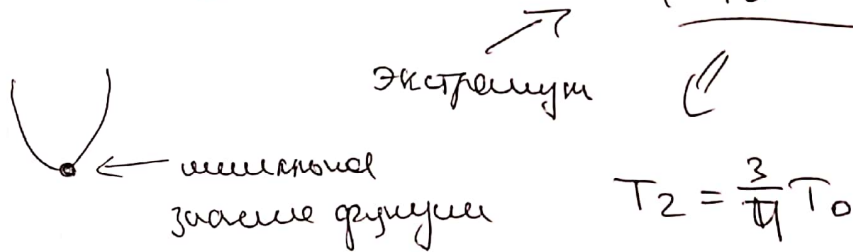 экстремум
минимальное
значение функции
T₂ = 3/4 T₀